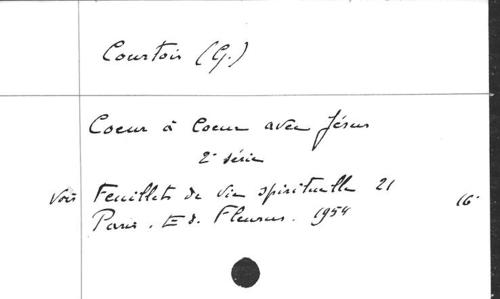 Courtois (G.)
Coeur à Coeur avec Jésus
2e série
Voir Feuillets de vie spirituelle 21 16°
Paris. Ed. Fleurus. 1954